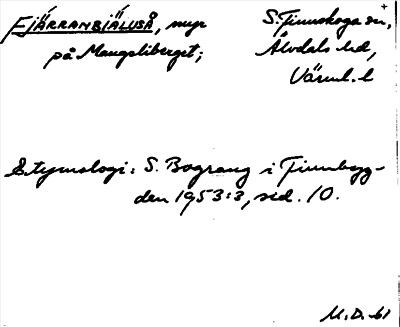 FJÄRRANBJÄLUSÅ, myr S. Finnskoga sn,
på Mangsliberget; Älvdals hd,
Värml. l
Etymologi: S. Bograng i Finnbyg-
den 1953:3, sid. 10.
M.D. -61